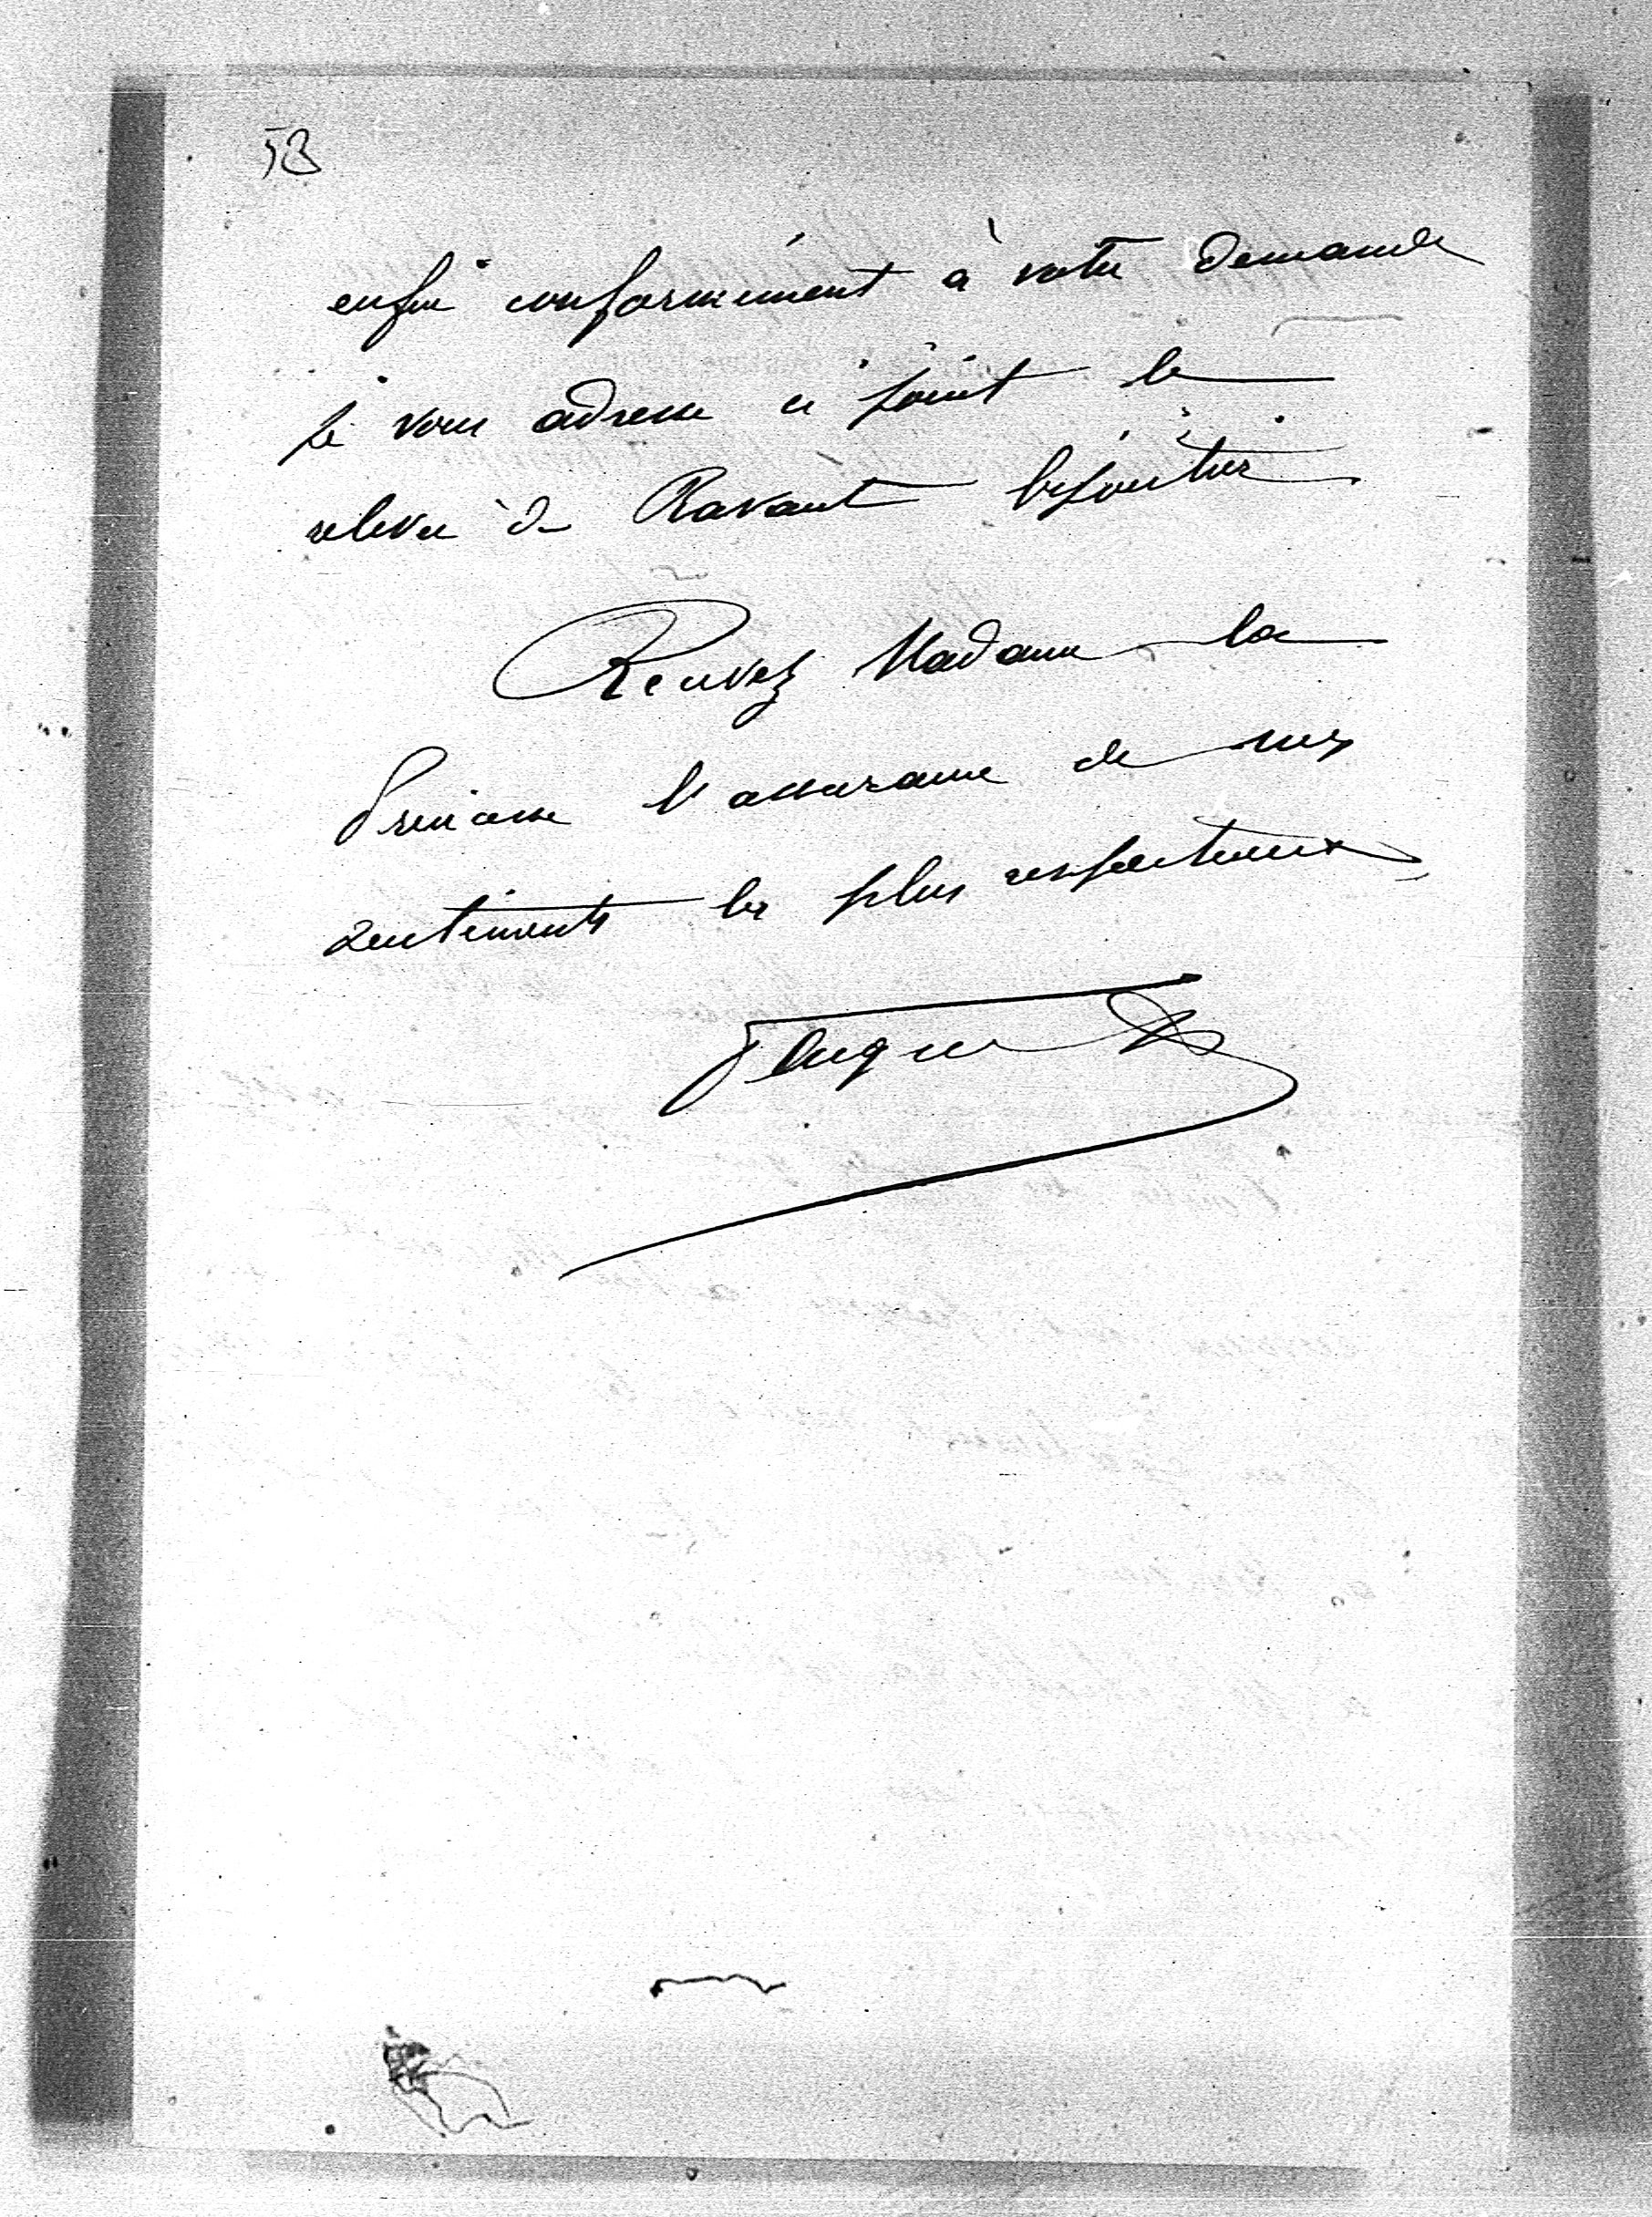 53
enfin conformément à votre demande
je vous adresse ci joint le
relevé de Ravaut bijoutier
Recevez Madame la
Princesse l'assurance de mes
sentiments les plus respectueux